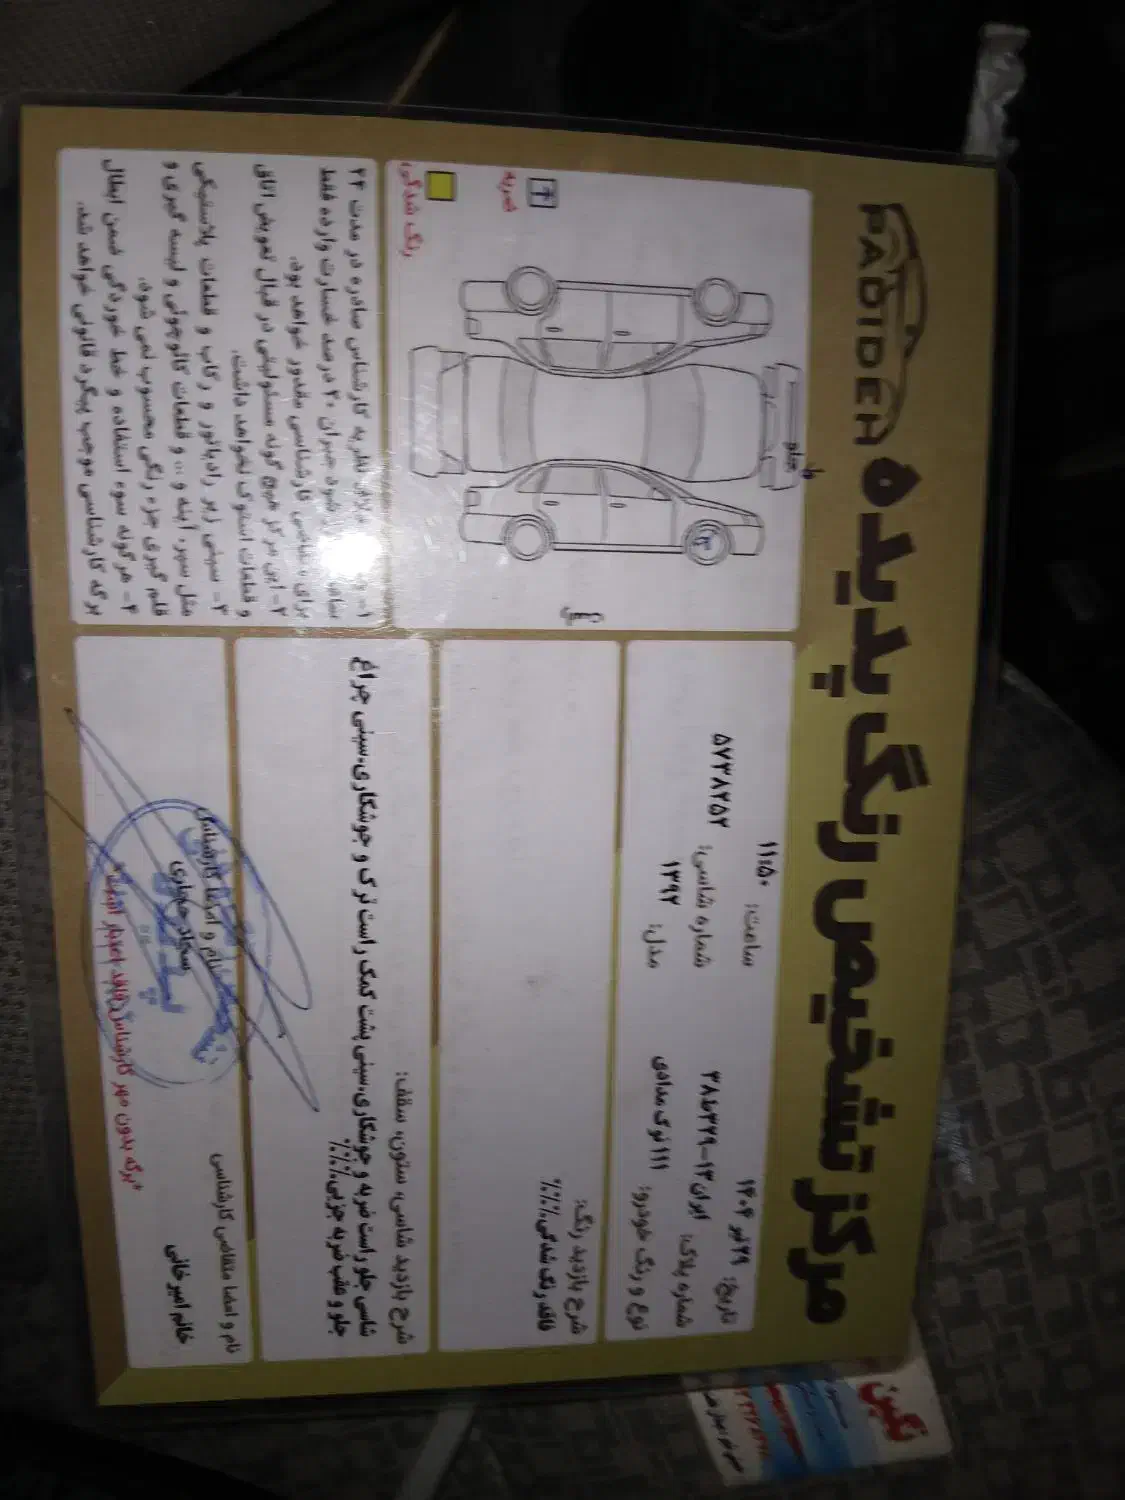 مرکز تشخیص رنگ پدیده
PADIDEH
تاریخ: ۲۹ تیر ۱۴۰۴
ساعت: ۱۱:۵۰
شماره پلاک: ایران ۱۳-۳۷۹ط۳۸
شماره شاسی: ۵۷۳۸۲۵۲
نوع و رنگ خودرو: ۱۱۱ نوک مدادی
مدل: ۱۳۹۲
شرح بازدید رنگ:
فاقد رنگ شدگی.%%
شرح بازدید شاسی، ستون، سقف:
شاسی جلو راست ضربه و جوشکاری.سینی پشت کمک راست ترک و جوشکاری.سینی چراغ
جلو و عقب ضربه جزیی.%%
نام و امضا متقاضی کارشناسی
خانم امیرخانی
نام و امضا کارشناس
سجاد
*برگه بدون مهر کارشناس فاقد اعتبار است*
جلو
ضربه
رنگ شدگی
کارشناس صادره در مدت ۲۴
شود جبران ۲۰ درصد خسارت وارده فقط
برای متقاضی کارشناسی مقدور خواهد بود.
۲- این مرکز هیچ گونه مسئولیتی در قبال تعویض اتاق
و قطعات استوک نخواهد داشت.
۳- سینی زیر رادیاتور و رکاب و قطعات پلاستیکی
مثل سپر، آینه و ... و قطعات کاپوتی و لیسه گیری و
قلم گیری جزء رنگی محسوب نمی شود.
۴- هرگونه سوء استفاده و خط خوردگی ضمن ابطال
برگه کارشناسی موجب پیگرد قانونی خواهد شد.
نگین